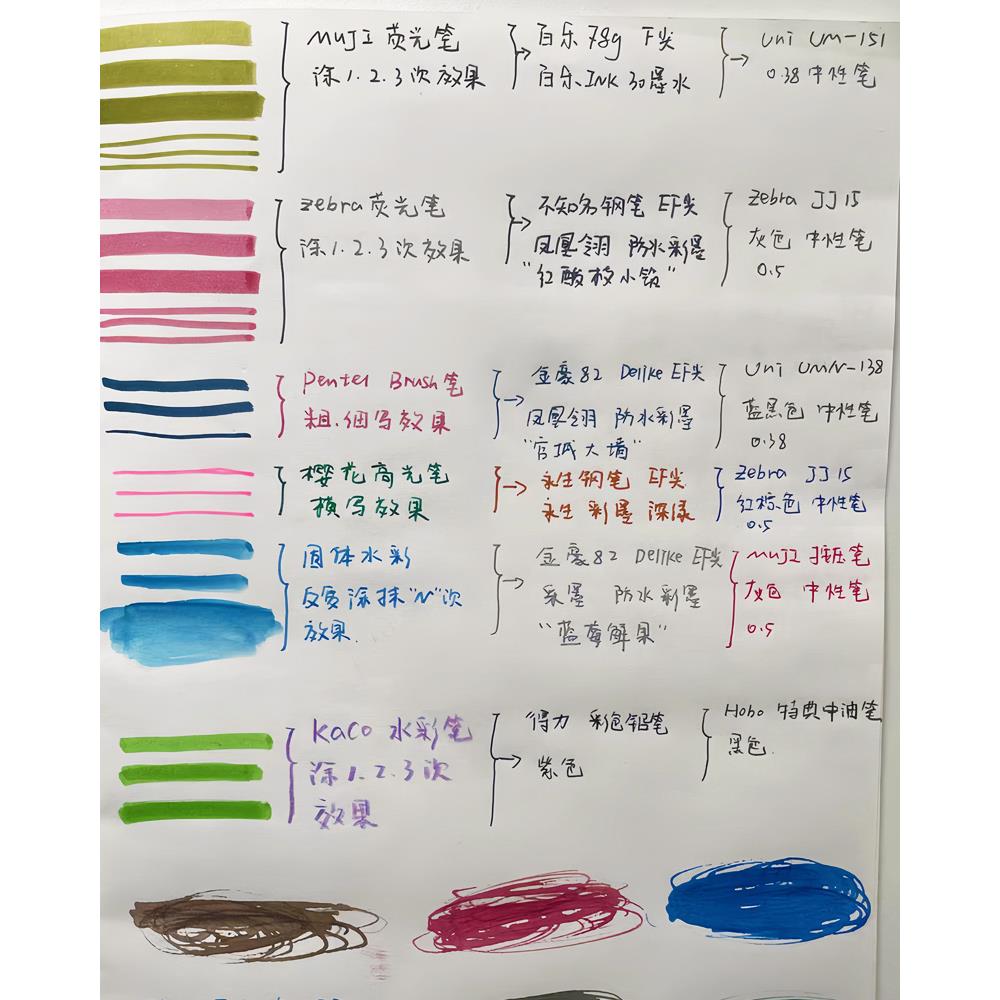 MUJI 荧光笔
涂1.2.3次效果
百乐 78g F尖
百乐 INK 30墨水
uni UM-151
0.38 中性笔
zebra 荧光笔
涂1.2.3次效果
不知名钢笔 EF尖
凤凰翎 防水彩墨
"红酸枝小
zebra JJ15
灰色 中性笔
0.5
Pentel Brush笔
粗.细写效果
金豪82 Delike EF尖
凤凰翎 防水彩墨
"宫城大墙"
Uni UMN-138
蓝黑色 中性笔
0.38
樱花高光笔
横写效果
永生钢笔 EF尖
永生 彩墨 深绿
Zebra JJ15
红棕色 中性笔
0.5
固体水彩
反复涂抹"N"次
效果.
金豪82 Delike EF尖
采墨 防水彩墨
"蓝莓解果"
MUJI 按压笔
灰色 中性笔
0.5
Kaco 水彩笔
涂1.2.3次
效果
得力 彩色铅笔
紫色
Hobo 特典中油笔
黑色.